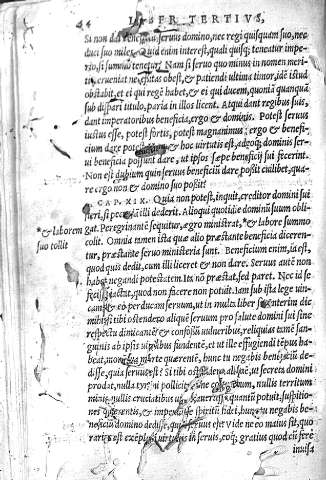 LIBER TERTIVS,
Si non dat beneficium seruus domino, nec regi quisquam suo, nec
duci suo miles. Quid enim interest, quali quisq; teneatur impe-
rio, si summo tenetur? Nam si seruo quo minus in nomen meriti
perueniat necessitas obest, & patiendi ultima timor, idē istud
obstabit, et ei qui regē habet, & ei qui ducem, quoniā quanquā
sub dispari titulo, paria in illos licent. Atqui dant regibus suis,
dant imperatoribus beneficia, ergo & dominis. Potest seruus
iustus esse, potest fortis, potest magnanimus: ergo & benefi-
cium dare potest, & hoc uirtutis est, adeoq; dominis ser-
ui beneficia possunt dare, ut ipsos sæpe beneficij sui fecerint.
Non est dubium quin seruus beneficiū dare possit cuilibet, qua-
re ergo non & domino suo possit?
CAP. XIX. Quia non potest, inquit, creditor domini sui
fieri, si pecuniā illi dederit. Alioqui quotidie dominū suum obli-
* & laborem gat. Peregrinantē sequitur, ægro ministrat, * & labore summo
suo collit colit. Omnia tamen ista quæ alio præstante beneficia dicerem-
tur, præstante seruo ministeria sunt. Beneficium enim, id est,
quod quis dedit, cum illi liceret & non dare. Seruus autē non
habet negandi potestatem. Ita nō præstat, sed paret. Nec id se
fecisse iactat, quod non facere non potuit. Iam sub ista lege uin-
cam, & eo perducam seruum, ut in multa liber sit. Interim dic
mihi, si tibi ostendero aliquē seruum pro salute domini sui sine
respectu dimicantē & confossū uulneribus, reliquias tamē san-
guinis ab ipsis uitalibus fundentē, et ut ille effugiendi tēpus ha-
beat, moram sua morte quærentē, hunc tu negabis beneficiū de-
disse, quia seruus est? Si tibi ostendero aliquē, ut secreta domini
prodat, nulla tyranni pollicitatione corruptum, nullis territum
minis, nullis cruciatibus uictum, auertisse quantū potuit, suspitio-
nes quærentis, & impendisse spiritū fidei, hunc tu negabis be-
neficiū domino dedisse, quia seruus est? Vide ne eo maius sit, quo
rarius est exēplū uirtutis in seruis, eoq; gratius quod cū ferè
inuisa